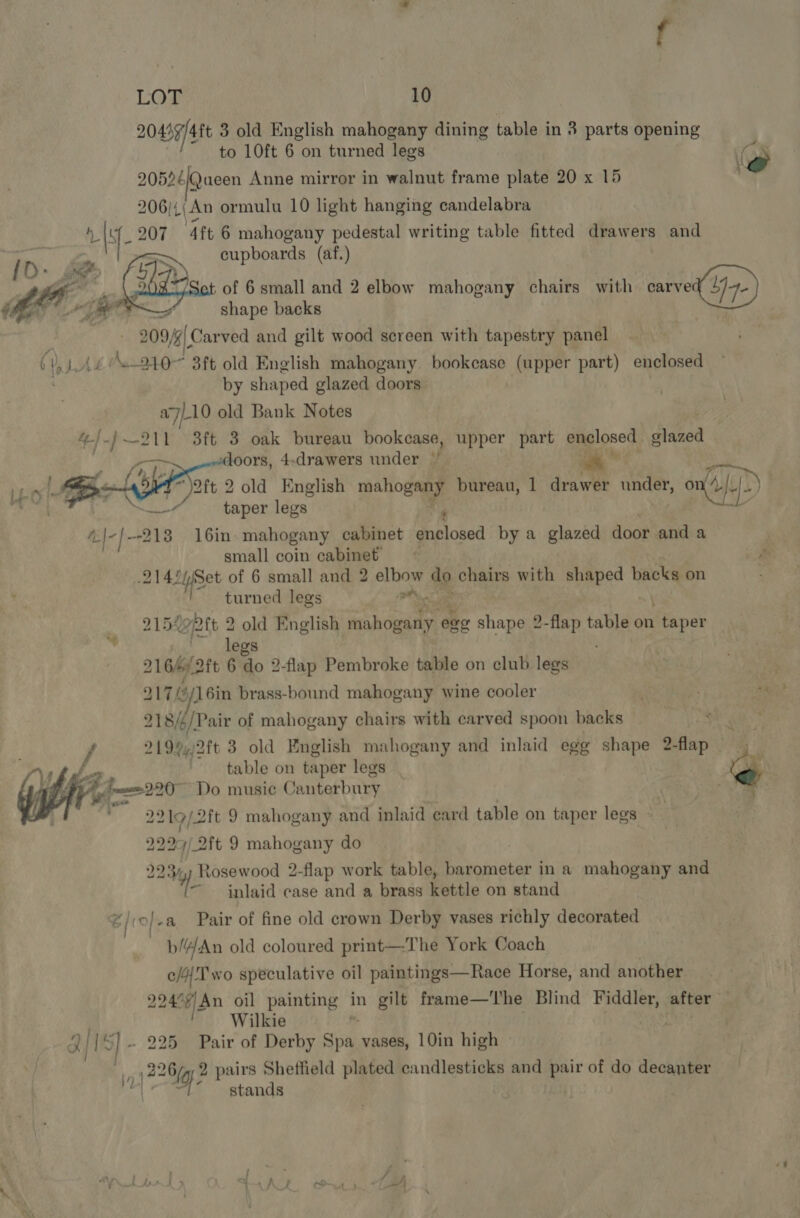 LOT 10
204 4ft 3 old English mahogany dining table in 3 parts opening
to 10ft 6 on turned legs
205 Queen Anne mirror in walnut frame plate 20 x 15
206 An ormulu 10 light hanging candelabra
207 4ft 6 mahogany pedestal writing table fitted drawers and
cupboards (af.)
208 Set of 6 small and 2 elbow mahogany chairs with carved
shape backs
209 Carved and gilt wood screen with tapestry panel
210 3ft old English mahogany bookcase (upper part) enclosed
by shaped glazed doors
a 10 old Bank Notes
211 3ft 3 oak bureau bookcase, upper part enclosed glazed
doors, 4-drawers under
2ft 2 old English mahogany bureau, 1 drawer under, on
taper legs
213 16in mahogany cabinet enclosed by a glazed door and a
small coin cabinet
214 Set of 6 small and 2 elbow do chairs with shaped backs on
turned legs
215 2ft 2 old English mahogany egg shape 2-flap table on taper
legs
216 2ft 6 do 2-flap Pembroke table on club legs
217 16in brass-bound mahogany wine cooler
218 Pair of mahogany chairs with carved spoon backs
219 2ft 3 old English mahogany and inlaid egg shape 2-flap
table on taper legs
220 Do music Canterbury
221 2ft 9 mahogany and inlaid card table on taper legs
222 2ft 9 mahogany do
223 Rosewood 2-flap work table, barometer in a mahogany and
inlaid case and a brass kettle on stand
a Pair of fine old crown Derby vases richly decorated
b An old coloured print—The York Coach
c Two speculative oil paintings—Race Horse, and another
224 An oil painting in gilt frame—The Blind Fiddler, after
Wilkie
225 Pair of Derby Spa vases, 10in high
226 2 pairs Sheffield plated candlesticks and pair of do decanter
stands